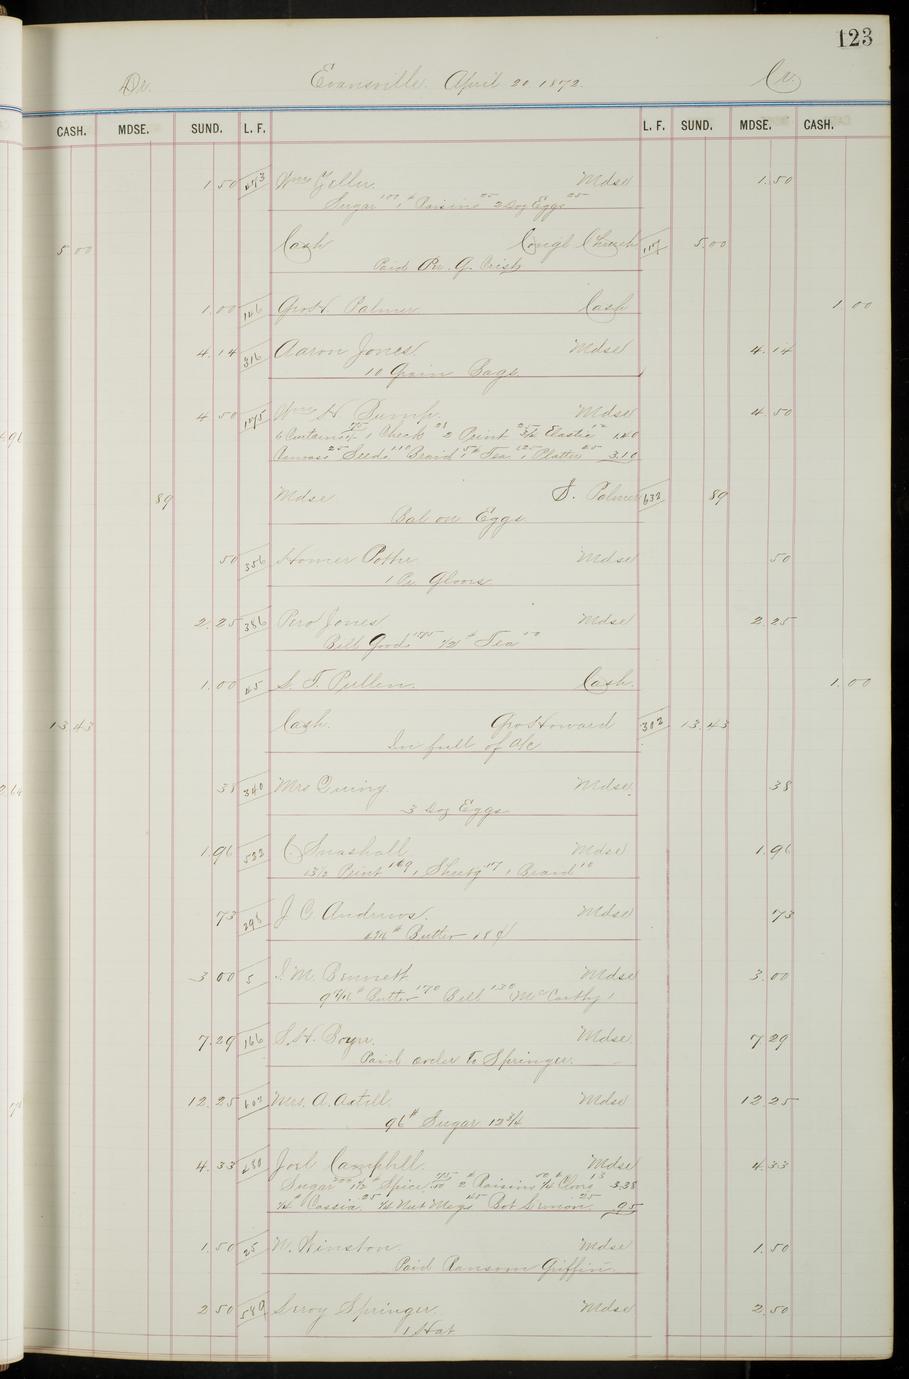 123
Dr. Evansville. April 20 1872. Cr.
CASH. MDSE. SUND. L. F. L. F. SUND. MDSE. CASH.
1.50 Wm Zeller. Mdse 1.50
Sugar 100 1# Raisins 25 2 Doz Eggs 25
5 00 Cash Congl Church 117 5.00
Paid Rv. G.
1.00 126 Geo H. Palmer Cash 1 00
4.14 316 Aaron Jones. Mdse 4.14
10 Grain Bags.
4 50 175 Wm H Bump. Mdse 4 50
6 Curtains 1 Check 21 2 Print 25 Elastic 12 1.40
Canvass 25 Seeds 110 Braid Tea 125 1 Platter 25 3.10
89 Mdse S. Palmer 632 89
Bal on Eggs.
50 356 Homer Potter Mdse 50
1 Pr Gloves
2.25 386 Jones Mdse 2.25
Bill Goods 175 1/2# Tea 50
1.00 45 S. T. Pullen. Cash. 1.00
13 43 Cash. Geo Howard 302 13.43
In full of a/c
38 340 Mrs Mdse. 38
3 Doz Eggs
1.96 522 C. Snashall Mdse 1.96
13 1/2 Print 169 1 Sheetg 17 1 Braid 10
73 298 J C Andrews. Mdse 73
Butter 18¢
3 00 5 I. M. Bennett Mdse 3.00
Butter 170 Bill 130 (McCarthy)
7.29 166 S. H. Mdse 7 29
Paid order to Springer.
12.25 602 Mrs. A. Axtell. Mdse 12.25
96# Sugar 12 3/4
4.33 430 Joel Campbell. Mdse 4.33
Sugar 200 Spice 2# Raisins 50 1/4# Cloves 13 3.38
1/4# Cassia 25 1/4 Nut Megs 45 Bot Lemon 25 95
1.50 25 W. Winston. Mdse 1.50
Paid Ransom Griffin.
2 50 540 Leroy Springer. Mdse 2.50
1 Hat